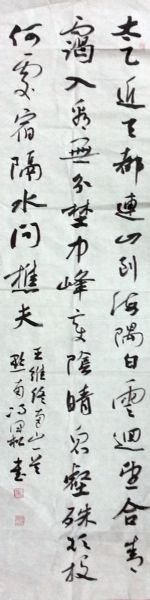 太乙近天都連山到海隅白雲迴望合青
靄入看無分埜中峰變陰晴衆壑殊欲投
何處宿隔水問樵夫
王維終南山一首
黔南冯書